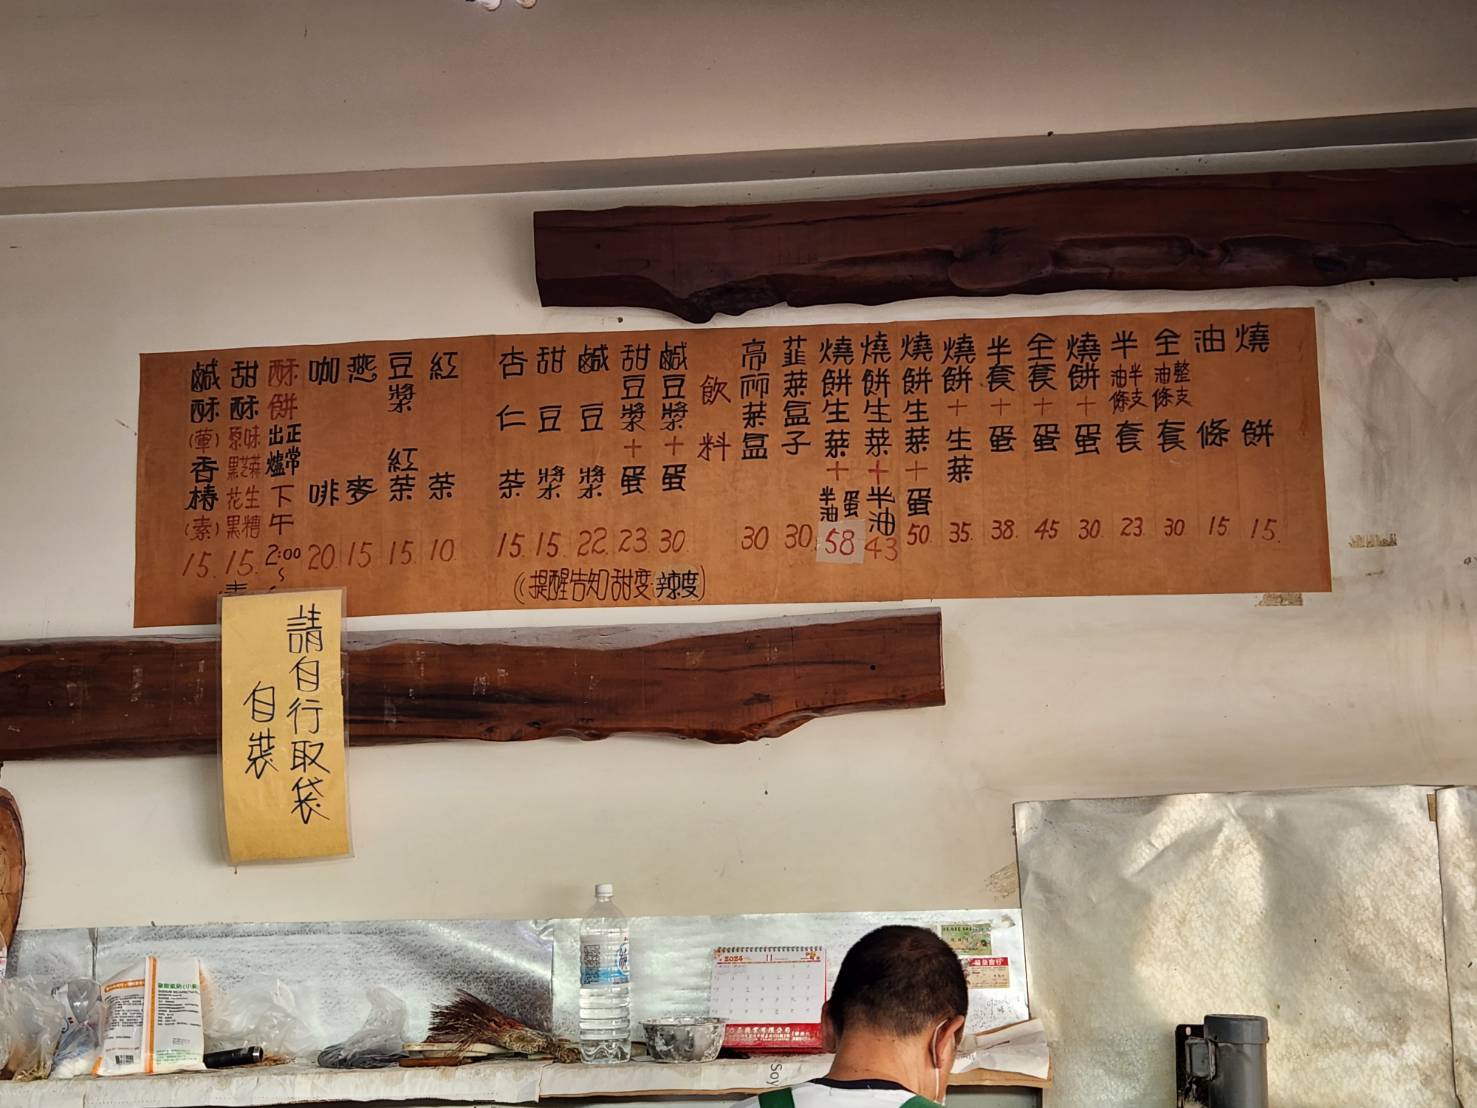 燒餅 15.
油條 15
全套 整支油條 30
半套 半支油條 23
燒餅+蛋 30
全套+蛋 45
半套+蛋 38
燒餅+生菜 35
燒餅生菜+蛋 50
燒餅生菜+半油 43
燒餅生菜+蛋半油 58
韮菜盒子 30.
高麗菜盒 30
飲料
鹹豆漿+蛋 30.
甜豆漿+蛋 23
鹹豆漿 22.
甜豆漿 15.
杏仁茶 15
紅茶 10
豆漿紅茶 15.
燕麥 15
咖啡 20
酥餅 正常出爐下午2:00~
甜酥 15.
鹹酥(葷)香椿(素) 15.
((提醒告知甜度.辣度))
請自行取袋
自裝
2024 11
Soy